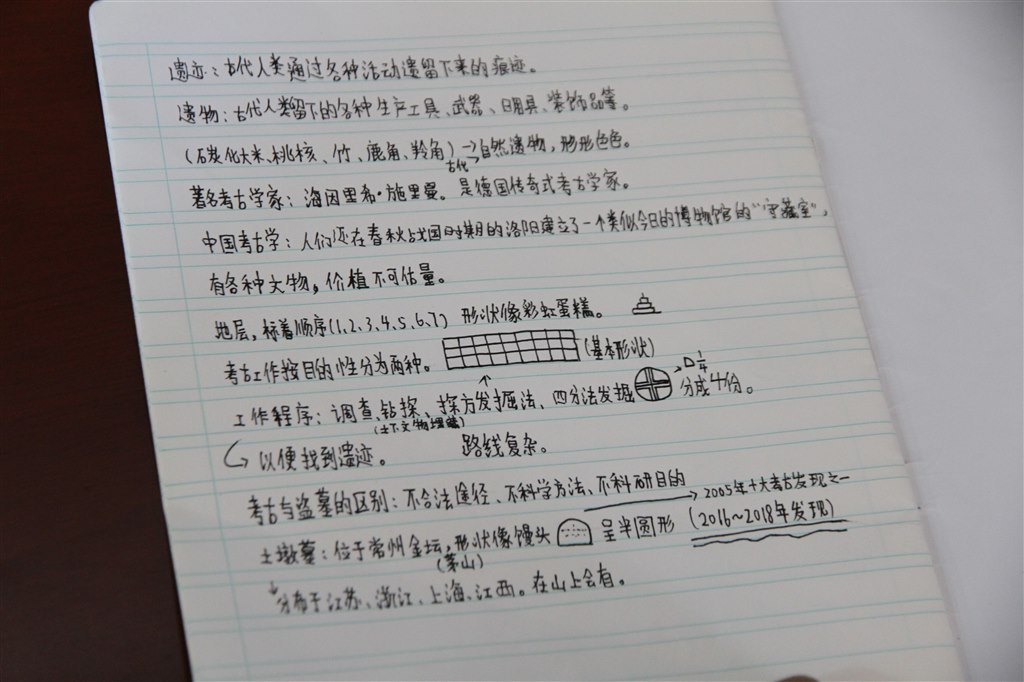 遗迹：古代人类通过各种活动遗留下来的痕迹。
遗物：古代人类留下的各种生产工具、武器、日用具、装饰品等。
(石炭化大米、桃核、竹、鹿角、羚角)→自然遗物，形形色色。
古代
著名考古学家：海因里希·施里曼。是德国传奇式考古学家。
中国考古学：人们还在春秋战国时期的洛阳建立了一个类似今日的博物馆的“守藏室”，
有各种文物，价值不可估量。
地层，标着顺序(1、2、3、4、5、6、7) 形状像彩虹蛋糕。
考古工作按目的性分为两种。 (基本形状)
工作程序：调查、钻探、探方发掘法、四分法发掘 1/4 分成4份。
(土下文物埋藏)
以便找到遗迹。 路线复杂。
考古与盗墓的区别：不合法途径、不科学方法、不科研目的 → 2005年十大考古发现之一
土墩墓：位于常州金坛，形状像馒头 呈半圆形 (2016~2018年发现)
(茅山)
分布于江苏、浙江、上海、江西。在山上会有。